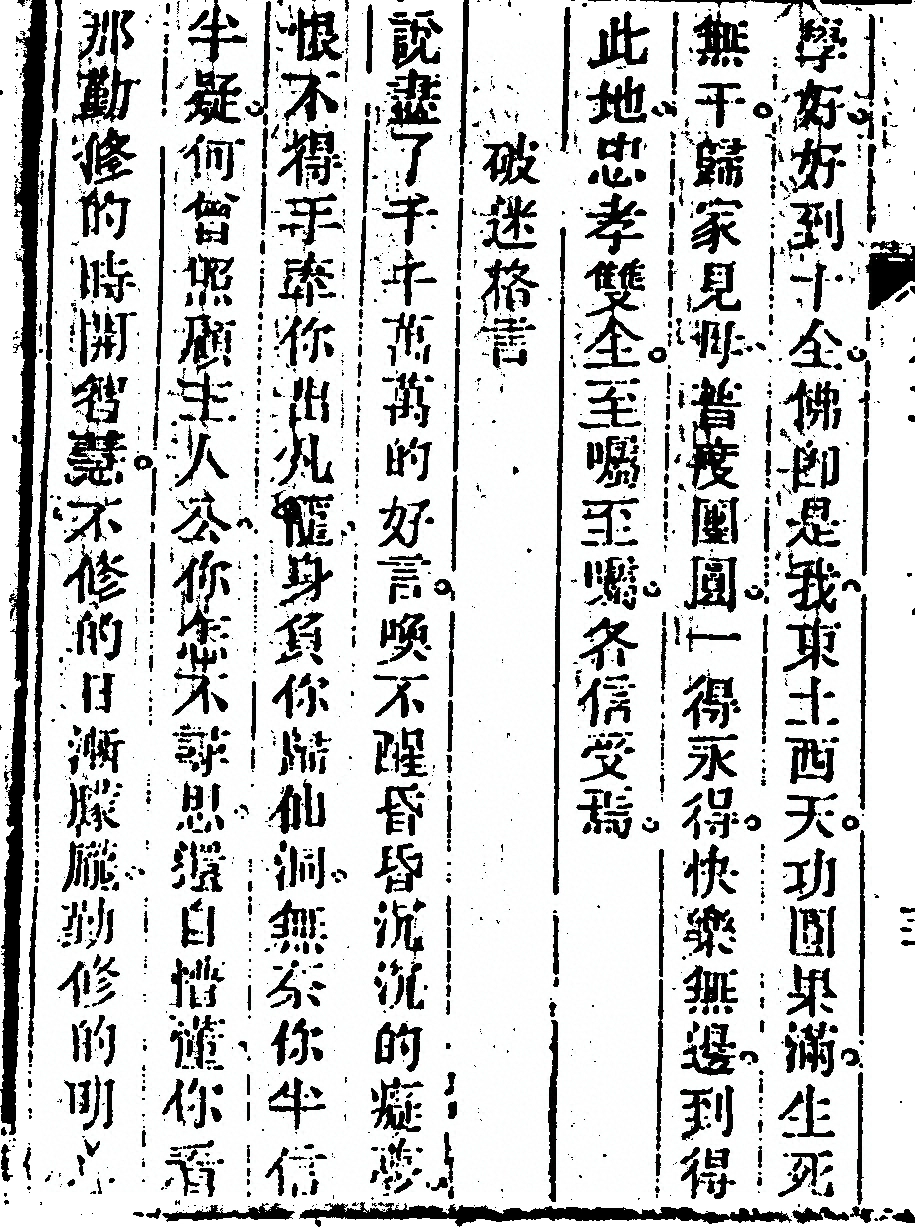 學好。好到十全。佛即是我。東土西天。功圓果滿。生死
無干。歸家見母。普度團圓。一得永得。快樂無邊。到得
此地。忠孝雙全。至囑至囑。各信受焉。
破迷格言
說盡了千千萬萬的好言。喚不醒昏昏沉沉的癡夢。
恨不得手牽你出凡籠。身負你歸仙洞。無奈你半信
半疑。何曾照顧主人公。你怎不尋思。還自懵董。你看
那勤修的時開智慧。不修的日漸朦朧。勤修的明
三